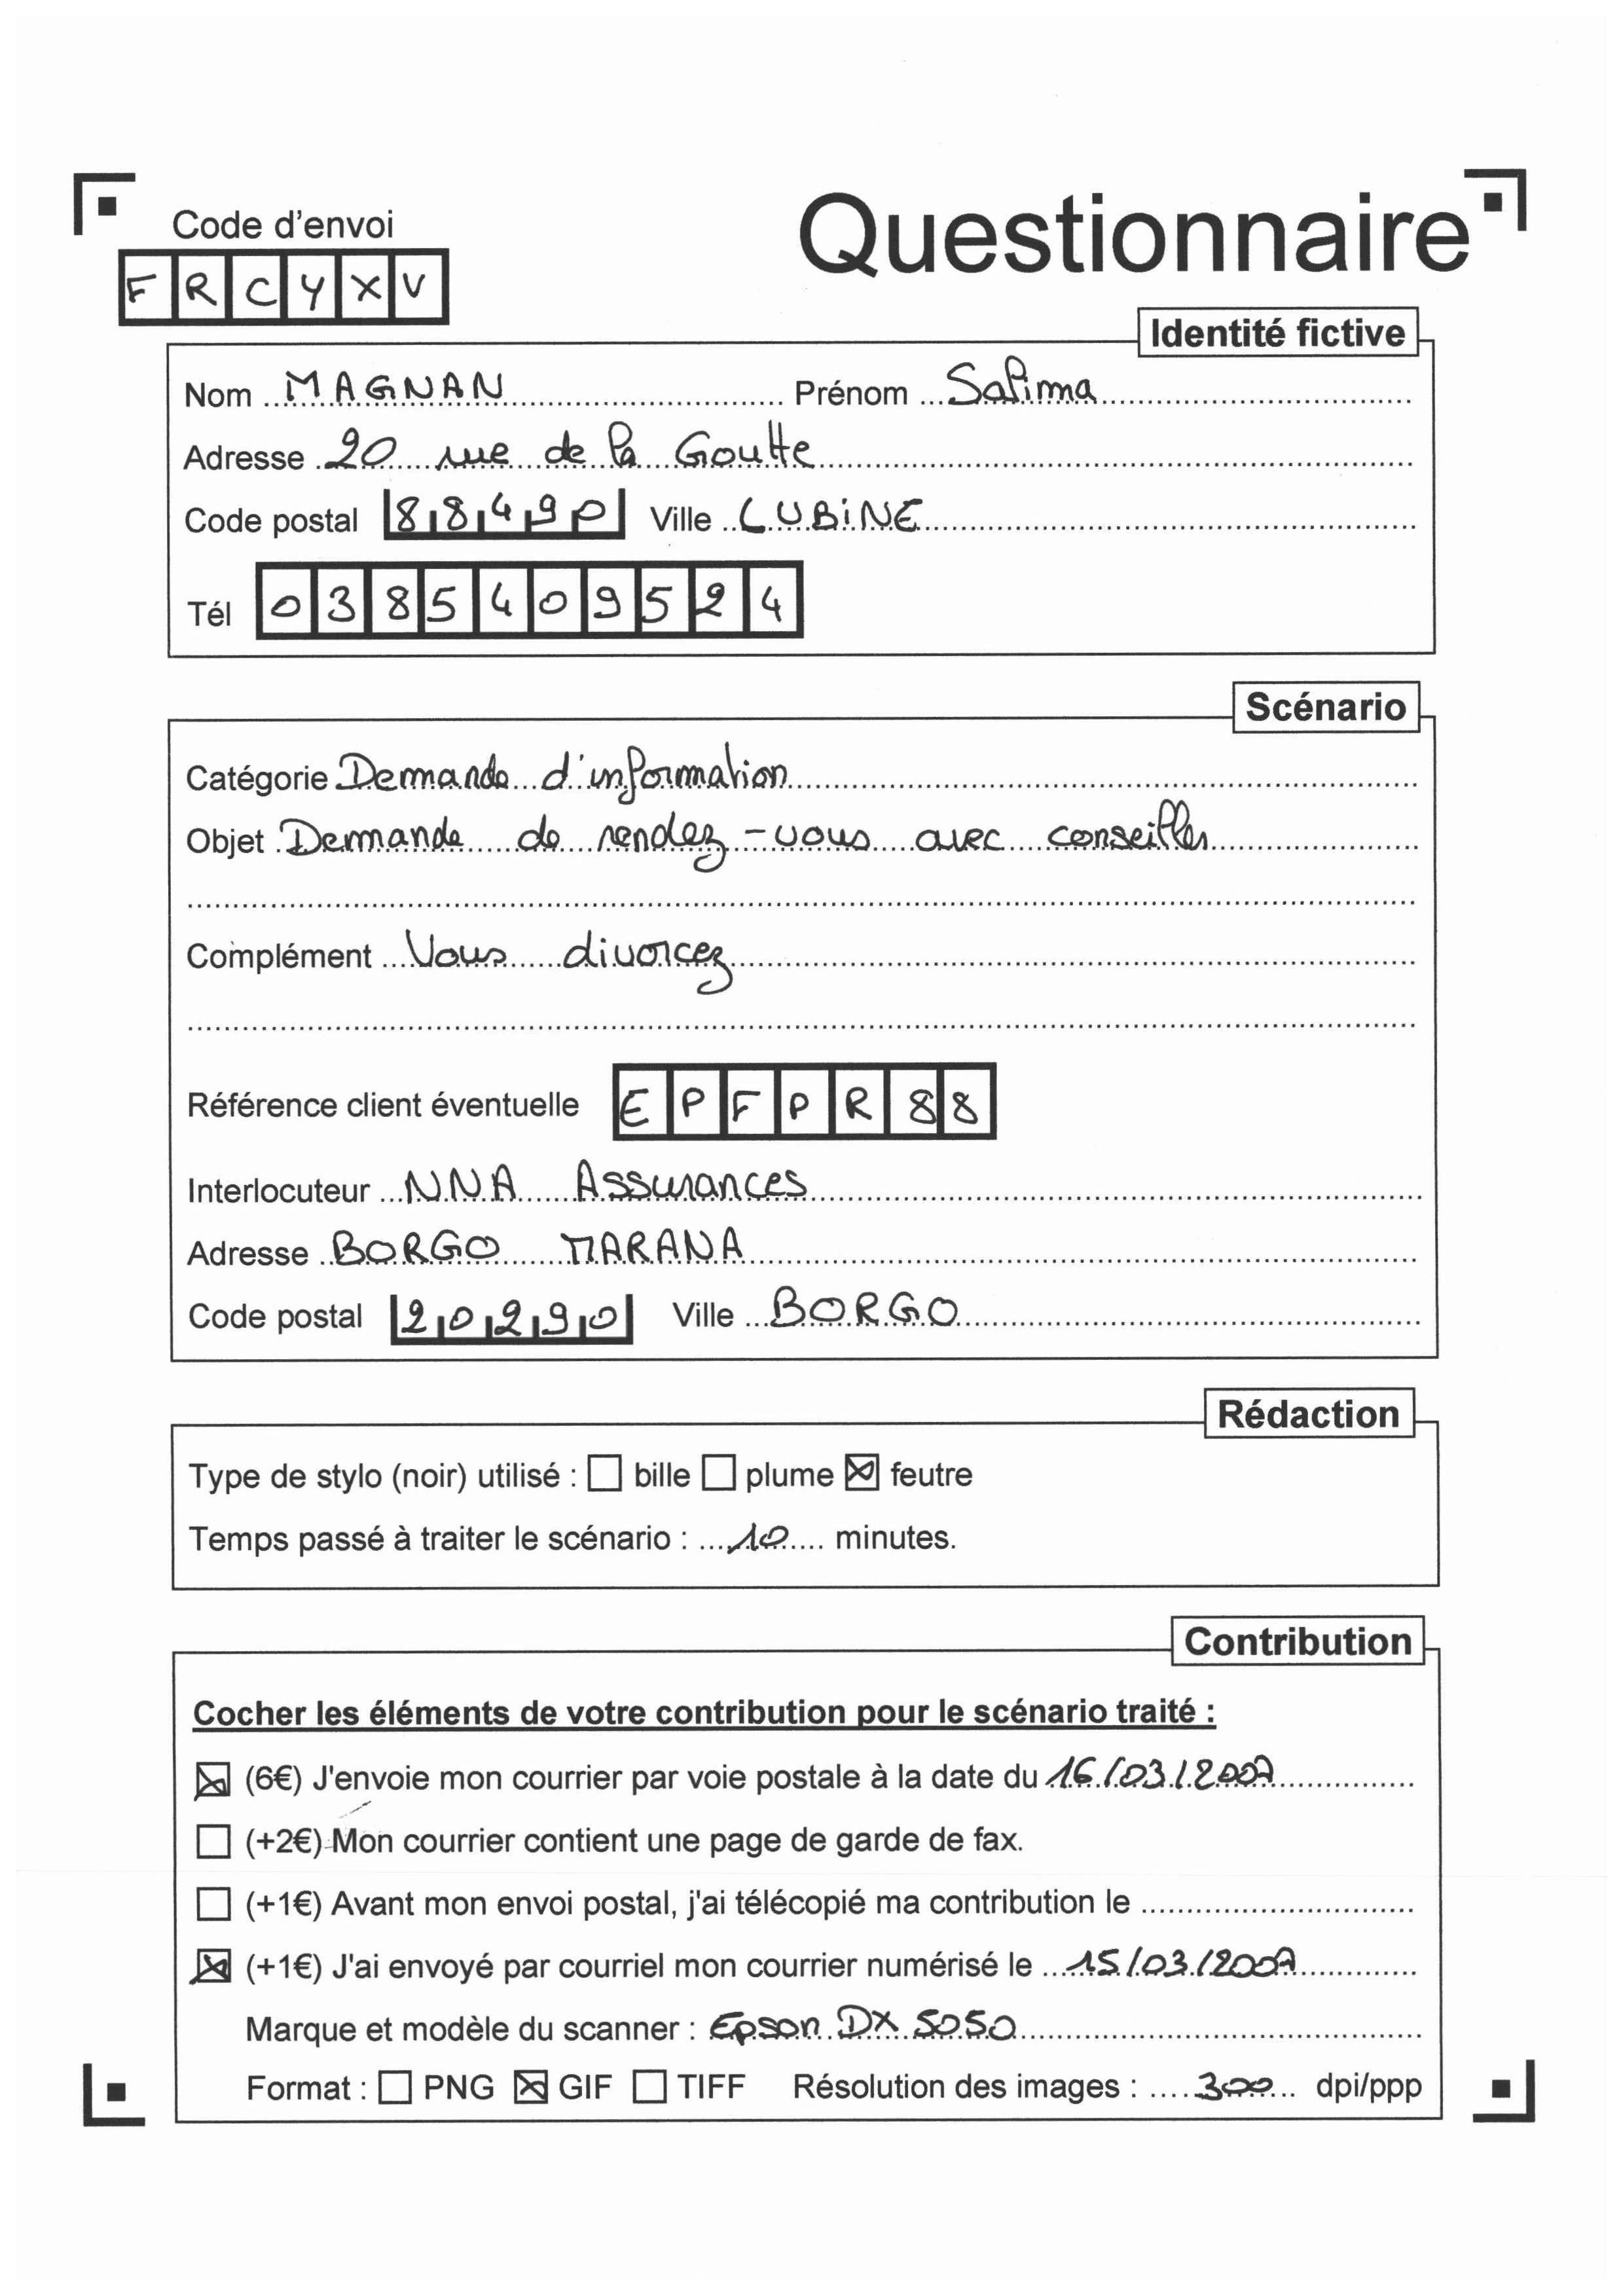 Code d'envoi
Questionnaire
FRCYXV
Identité fictive
Nom MAGNAN Prénom Salima
Adresse 20 rue de la Goutte
Code postal 88490 Ville LUBiNE
Tél 0385409524
Scénario
Catégorie Demande d'information
Objet Demande de rendez-vous avec conseiller
Complément Vous divorcez
Référence client éventuelle EPFPR88
Interlocuteur NNA Assurances
Adresse BORGO MARANA
Code postal 20290 Ville BORGO
Rédaction
Type de stylo (noir) utilisé : ☐ bille ☐ plume ☒ feutre
Temps passé à traiter le scénario : 10 minutes.
Contribution
Cocher les éléments de votre contribution pour le scénario traité :
☒ (6€) J'envoie mon courrier par voie postale à la date du 16/03/2007
☐ (+2€) Mon courrier contient une page de garde de fax.
☐ (+1€) Avant mon envoi postal, j'ai télécopié ma contribution le
☒ (+1€) J'ai envoyé par courriel mon courrier numérisé le 15/03/2007
Marque et modèle du scanner : Epson DX 5050
Format : ☐ PNG ☒ GIF ☐ TIFF Résolution des images : 300 dpi/ppp